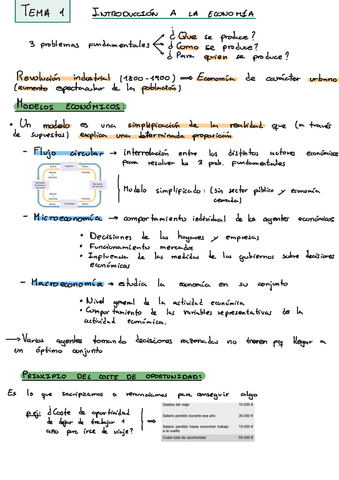 TEMA 1 INTRODUCCIÓN A LA ECONOMÍA
3 problemas fundamentales
¿Que se produce?
¿Como se produce?
¿Para quien se produce?
Revolución industrial (1800-1900) ⟹ Economía de carácter urbano
(aumento espectacular de la población)
MODELOS ECONÓMICOS:
• Un modelo es una simplificación de la realidad que (a través
de supuestos) explica una determinada proposición
- Flujo circular → interrelación entre los distintos actores económicos
para resolver los 3 prob. fundamentales
Modelo simplificado: (sin sector público y economía
cerrada)
- Microeconomía → comportamiento individual de los agentes económicos
• Decisiones de los hogares y empresas
• Funcionamiento mercados
• Influencia de las medidas de los gobiernos sobre decisiones
económicas
- Macroeconomía → estudia la economía en su conjunto
• Nivel general de la actividad económica
• Comportamiento de las variables representativas de la
actividad económica.
→ Varios agentes tomando decisiones no tienen pq llegar a
un óptimo conjunto
PRINCIPIO DEL COSTE DE OPORTUNIDAD:
Es lo que sacrificamos o renunciamos para conseguir algo
p.ej: ¿Coste de oportunidad
de dejar de trabajar 1
año para irse de viaje?
Gastos del viaje 10.000 €
Salario perdido durante ese año 30.000 €
Salario perdido hasta encontrar trabajo 15.000 €
a la vuelta
Coste total de oportunidad 55.000 €